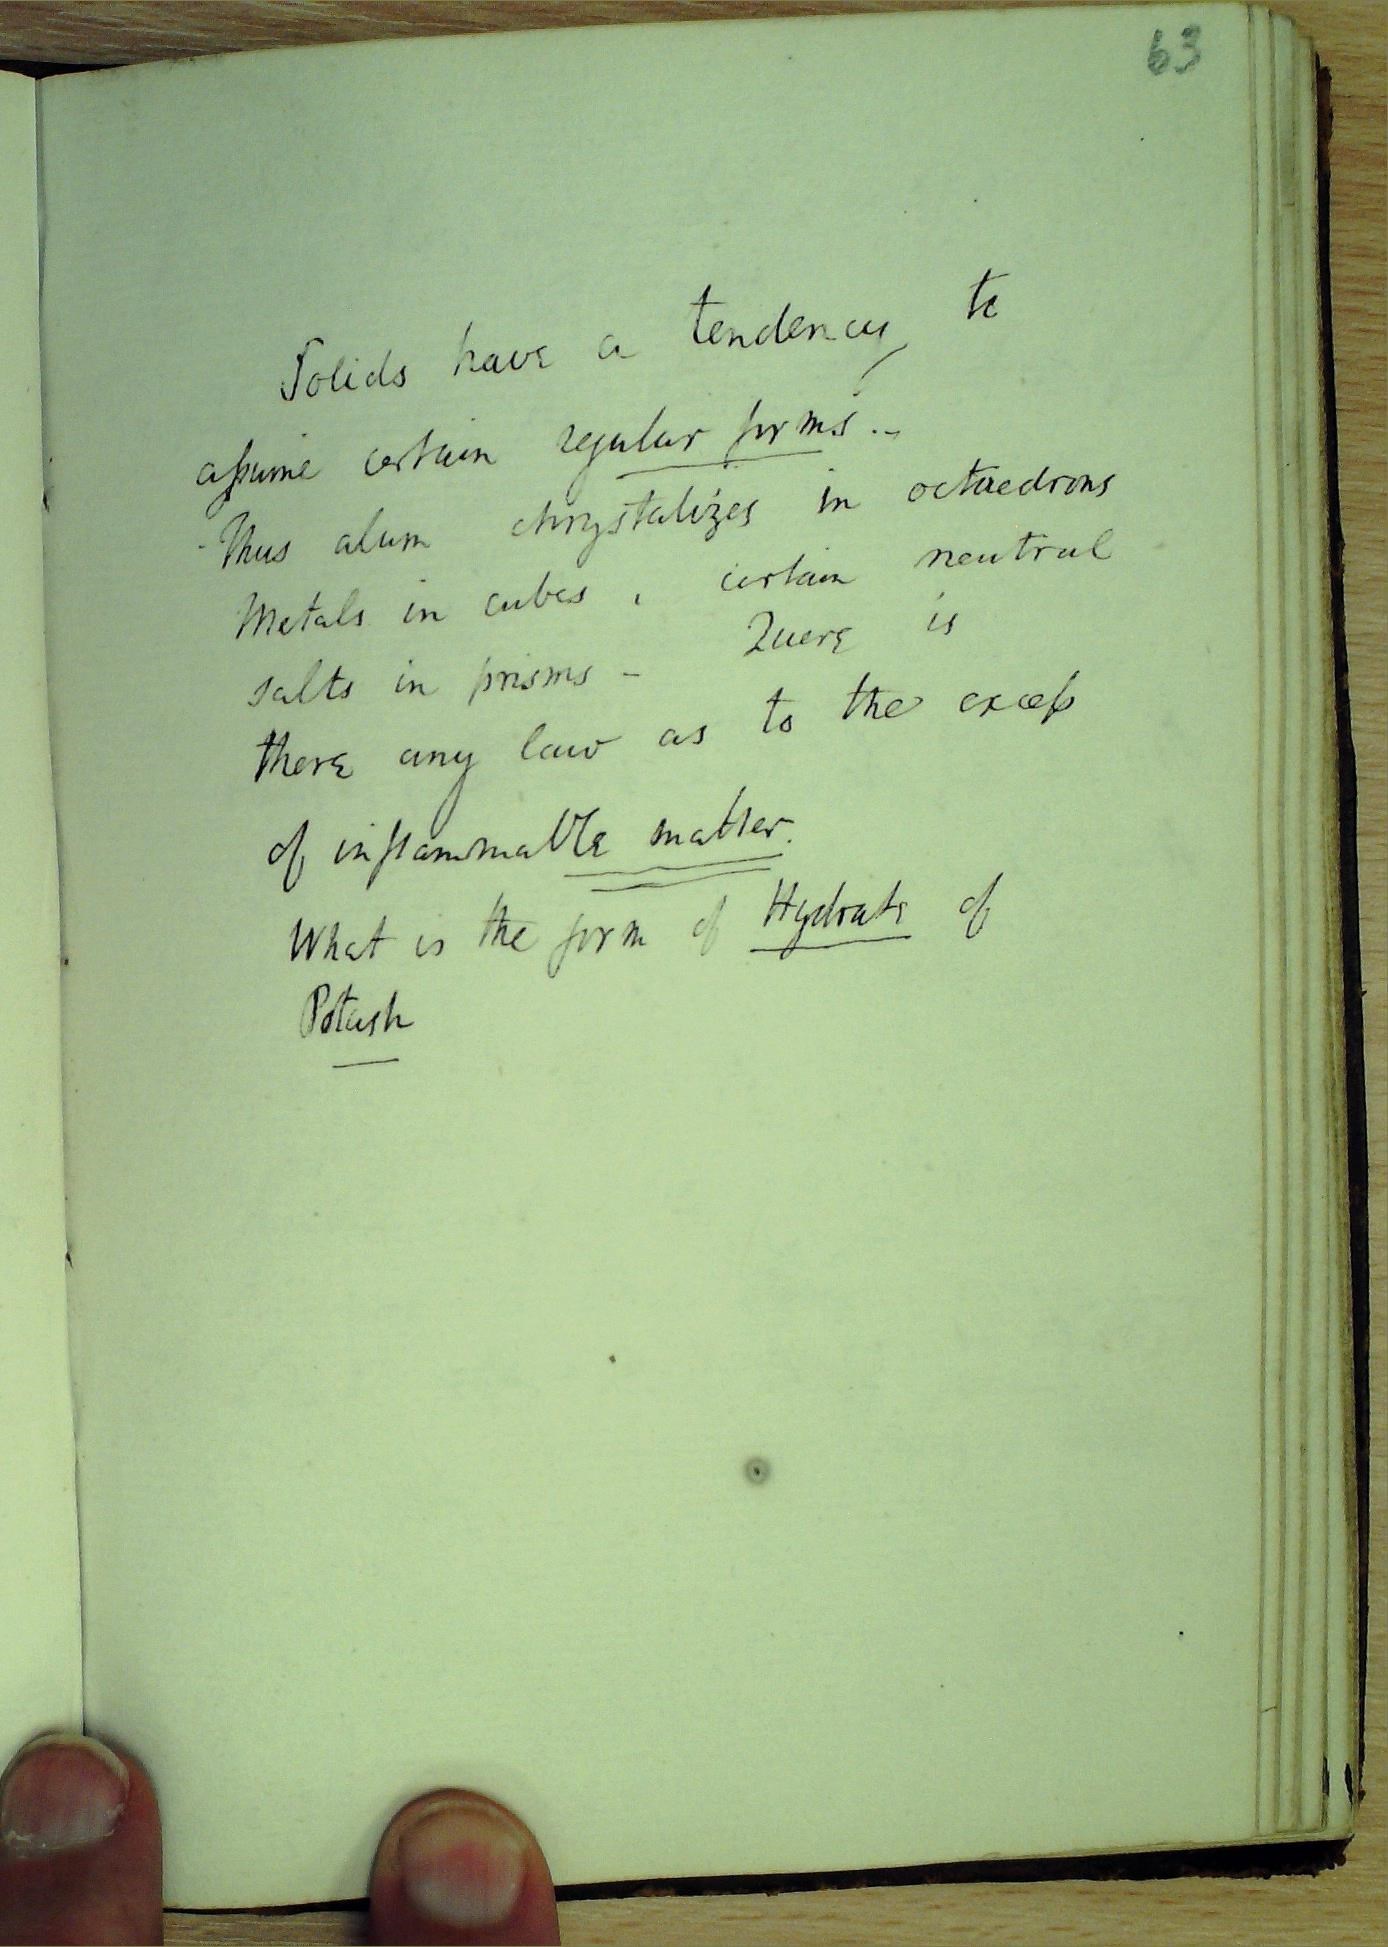 63
Solids have a tendency to
assume certain regular forms. -
Thus alum chrystalizes in octaedrons
Metals in cubes, certain neutral
salts in prisms - Quere is
there any law as to the excess
of inflammable matter.
What is the form of Hydrate of
Potash